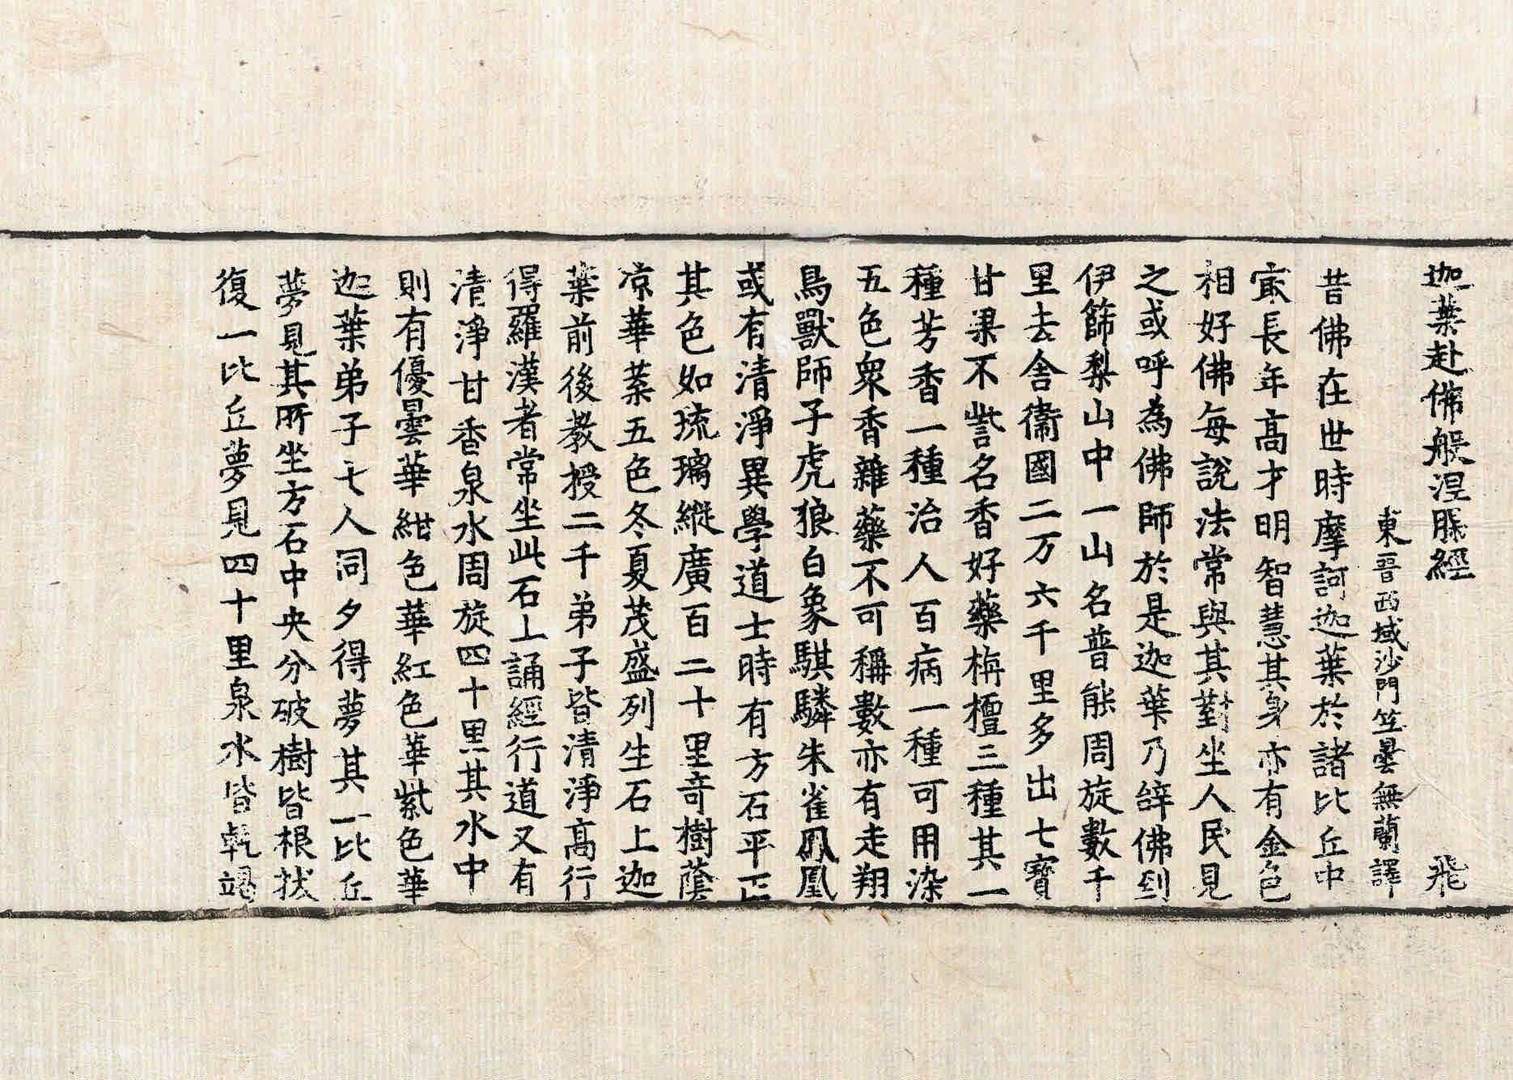 迦葉赴佛般涅槃經 飛
東晉西域沙門竺曇無蘭譯
昔佛在世時摩訶迦葉於諸比丘中
㝡長年高才明智慧其身亦有金色
相好佛每說法常與其對坐人民見
之或呼為佛師於是迦葉乃辝佛到
伊篩梨山中一山名普能周旋數千
里去舍衞國二万六千里多出七寶
甘果不訾名香好藥栴檀三種其一
種芳香一種治人百病一種可用染
五色衆香雜藥不可稱數亦有走翔
鳥獸師子虎狼白象騏驎朱雀鳳凰
或有清淨異學道士時有方石平正
其色如琉璃縱廣百二十里奇樹蔭
凉華菓五色冬夏茂盛列生石上迦
葉前後教授二千弟子皆清淨高行
得羅漢者常坐此石上誦經行道又有
清淨甘香泉水周旋四十里其水中
則有優曇華紺色華紅色華紫色華
迦葉弟子七人同夕得夢其一比丘
夢見其所坐方石中央分破樹皆根拔
復一比丘夢見四十里泉水皆乾竭